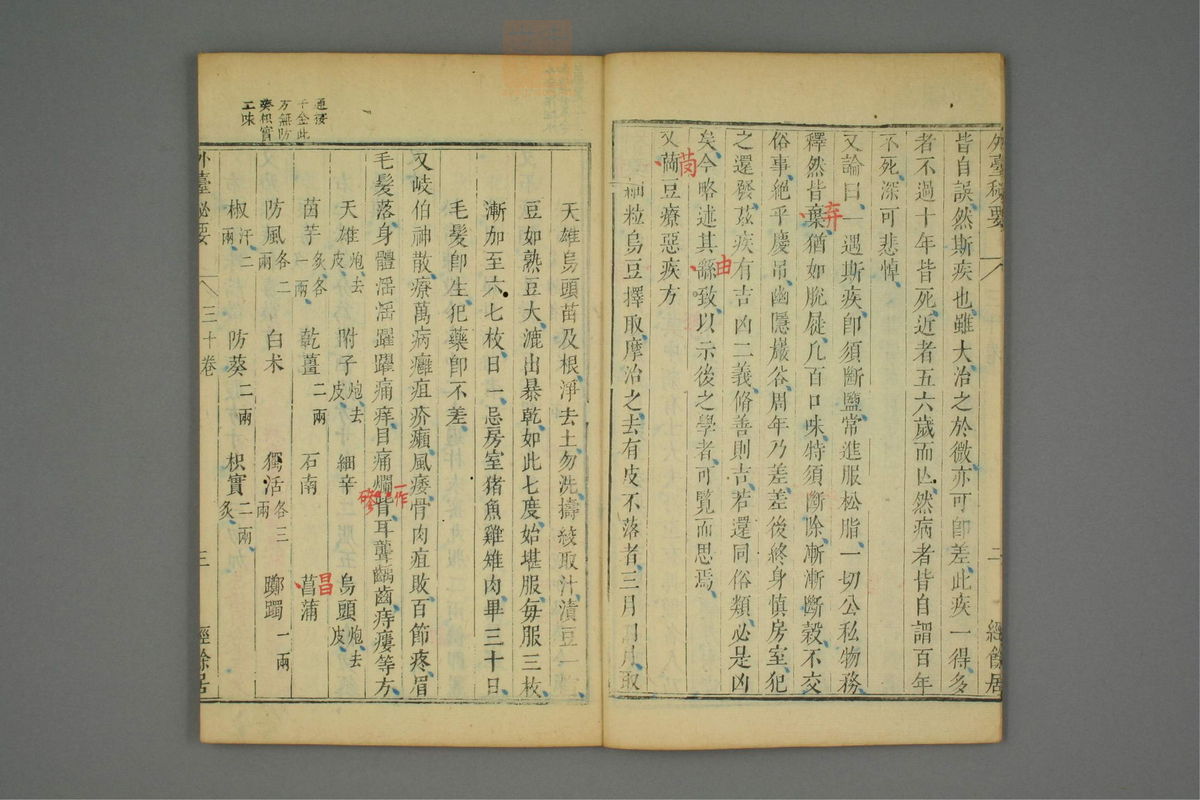 外臺秘要
二
經餘居
皆自誤然斯疾也雖大治之於微亦可卽差此疾一得多
者不過十年皆死近者五六歲而亡然病者皆自謂百年
不死深可悲悼
又論曰一遇斯疾卽須斷鹽常進服松脂一切公私物務
釋然皆棄猶如脫屣凡百口味特須斷除漸漸斷穀不交
弃
俗事絶乎慶弔幽隱巖谷周年乃差差後終身慎房室犯
之還發茲疾有吉凶二義脩善則吉若還同俗類必是凶
矣今略述其繇致以示後之學者可覽而思焉
由
又䓯豆療惡疾方
茵
細粒烏豆擇取摩治之去有皮不落者三月四月取
天雄烏頭苗及根淨去土勿洗擣絞取汁漬豆一
豆如熟豆大漉出暴乾如此七度始堪服每服三枚
漸加至六七枚日一忌房室猪魚雞雉肉畢三十日
毛髮卽生犯藥卽不差
又岐伯神散療萬病癰疽疥癩風痿骨肉疽敗百節疼眉
毛髮落身體淫淫躍躍痛痒目痛爛眥耳聾齲齒痔瘻等方
一作
天雄炮去皮 附子炮去皮 細辛 烏頭炮去皮
茵芋炙各一兩 乾薑二兩 石南 菖蒲
昌
防風各二兩 白朮 獨活各三兩 躑躅一兩
椒汗二兩 防葵二兩 枳實二兩炙
外臺秘要
三十卷
三
經餘居
千金此
方無防
葵枳實
二味